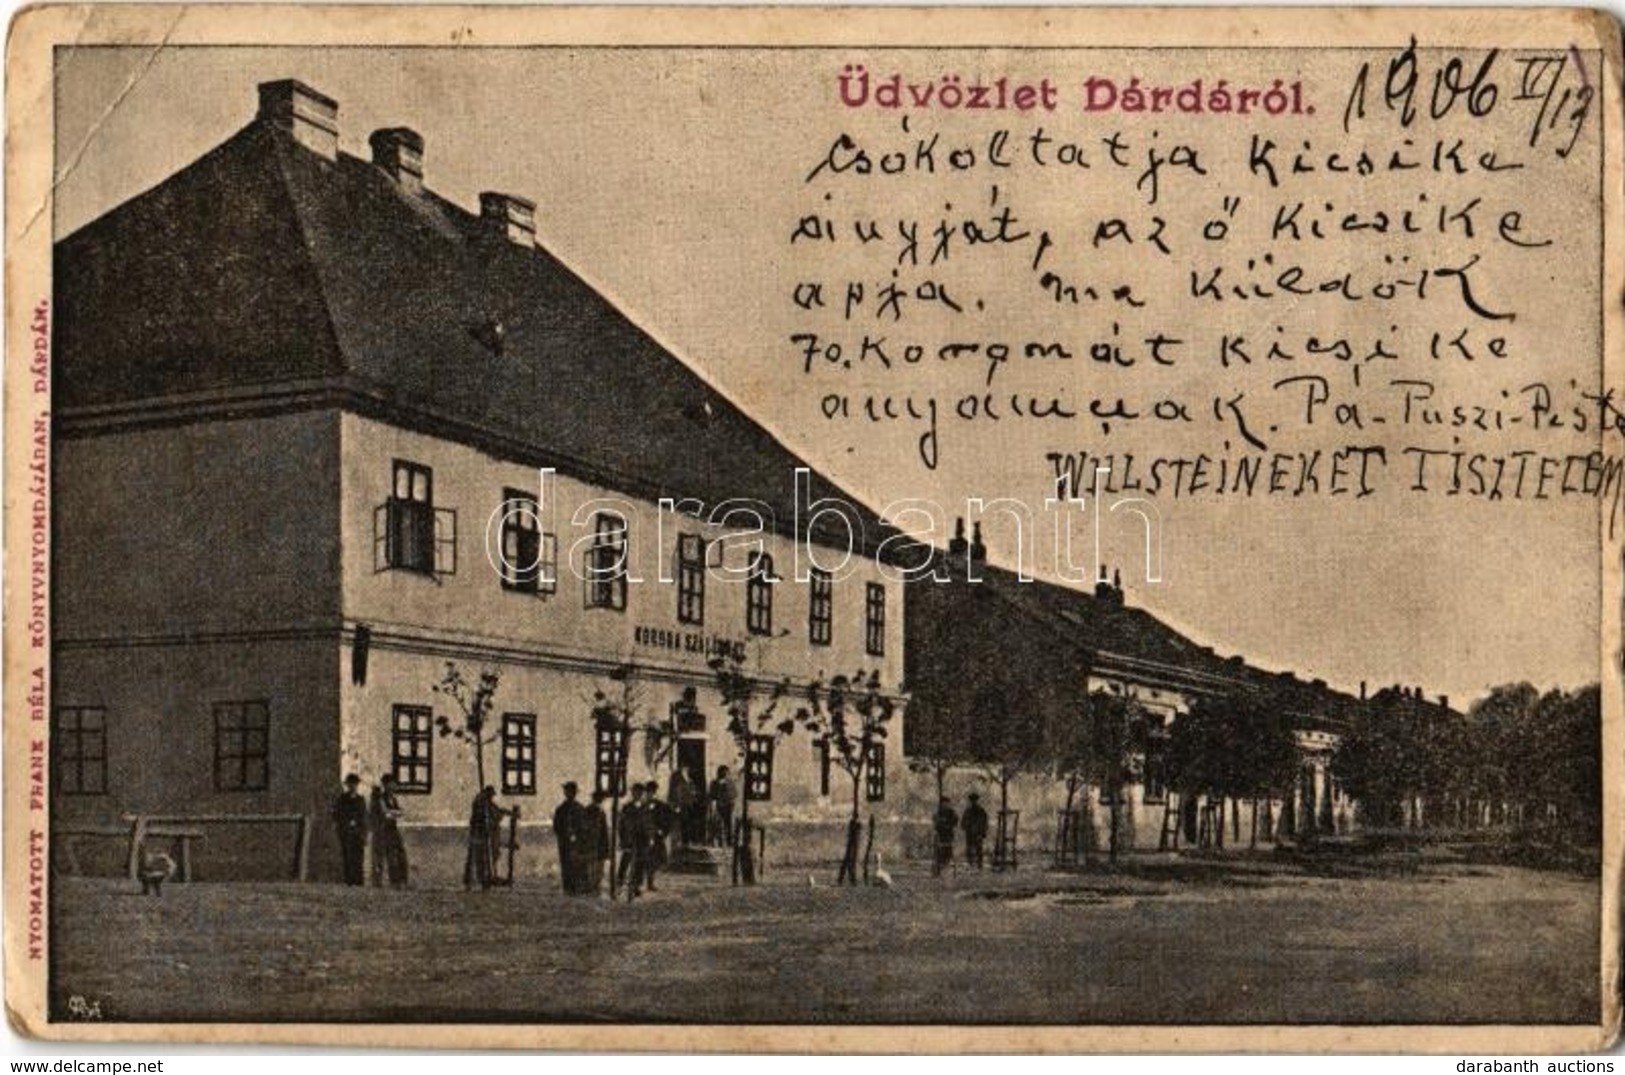 Üdvözlet Dárdáról.
1906 VI/13
Csókoltatja Kicsike
anyját, az ő Kicsike
apja. Ma Küldök
70. Koronát Kicsike
anyámnak. Pá-Puszi-Pista
WILLSTEINEKET TISZTELEM
KORONA SZÁLLODA
NYOMATOTT FRANK BÉLA KÖNYVNYOMDÁJÁBAN, DÁRDÁN.
darabanth
darabanth auctions